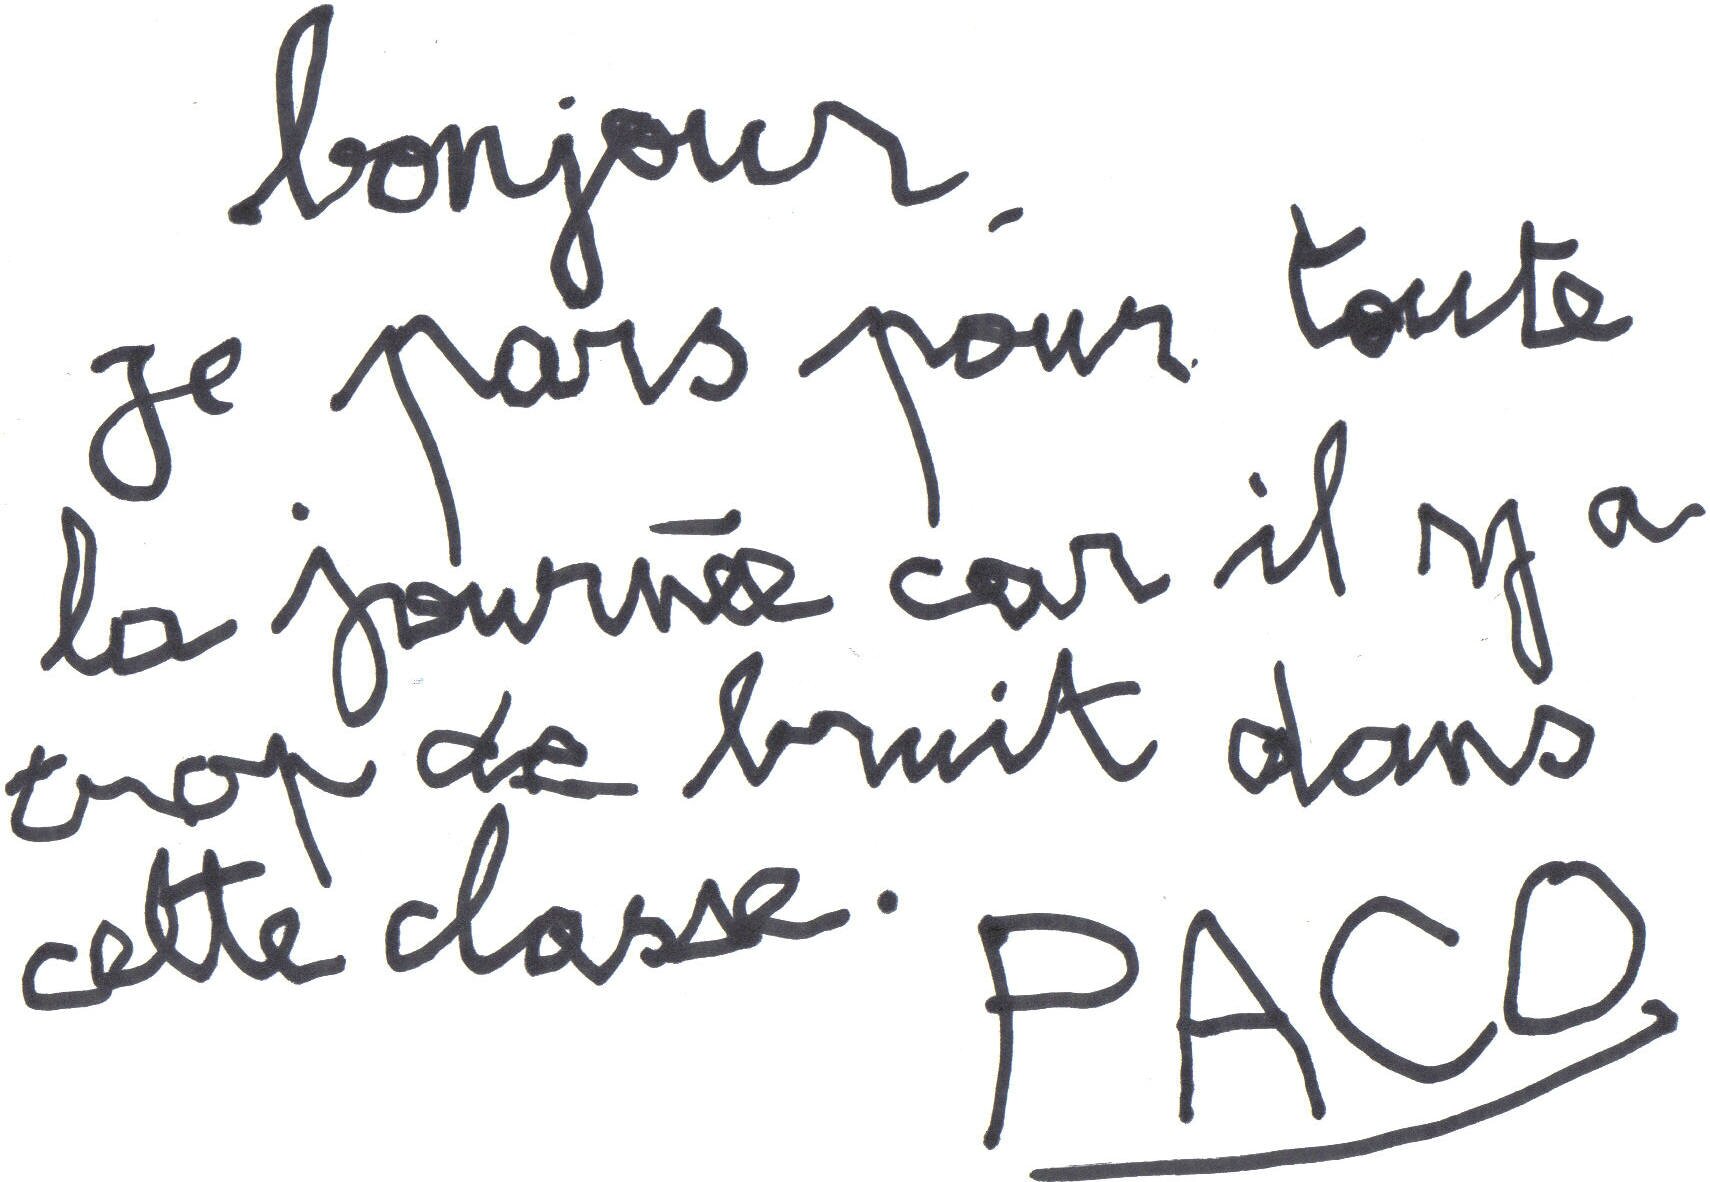 bonjour,
je pars pour toute
la journée car il y a
trop de bruit dans
cette classe.
PACO